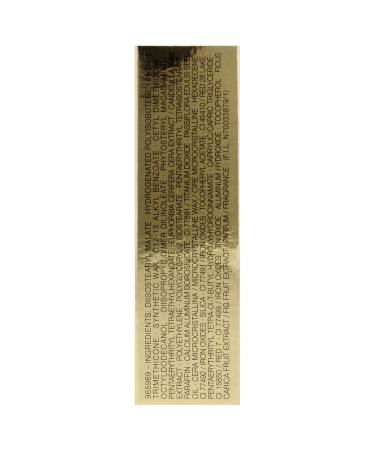 965989 - INGREDIENTS: DIISOSTEARYL MALATE · HYDROGENATED POLYISOBUTENE ·
TRIMETHICONE · SYNTHETIC WAX · C12-15 ALKYL BENZOATE · CETYL DIMETHICONE
OCTYLDODECANOL · DIISOPROPYL DIMER DILINOLEATE · PHYTOSTERYL MACADAMIATE
PENTAERYTHRITYL TETRAETHYLHEXANOATE · EUPHORBIA CERIFERA CERA EXTRACT / CANDELILLA WAX
EXTRACT · POLYETHYLENE · POLYGLYCERYL-2 ISOSTEARATE · PENTAERYTHRITYL TETRAISOSTEARATE
PARAFFIN · CALCIUM ALUMINUM BOROSILICATE · CI 77891 / TITANIUM DIOXIDE · PASSIFLORA EDULIS SEED
OIL · CERA MICROCRISTALLINA / MICROCRYSTALLINE WAX / CIRE MICROCRISTALLINE · HEXADECENE
CI 77492 / IRON OXIDES · SILICA · CI 77491 / IRON OXIDES · TOCOPHERYL ACETATE · CI 45410 / RED 28 LAKE
PENTAERYTHRITYL TETRA-DI-T-BUTYL HYDROXYHYDROCINNAMATE · CAPRYLIC/CAPRIC TRIGLYCERIDE ·
CI 15850 / RED 7 · CI 77499 / IRON OXIDES · TIN OXIDE · ALUMINUM HYDROXIDE · TOCOPHEROL · FICUS
CARICA FRUIT EXTRACT / FIG FRUIT EXTRACT · PARFUM / FRAGRANCE · (F.I.L. N70033879/1)